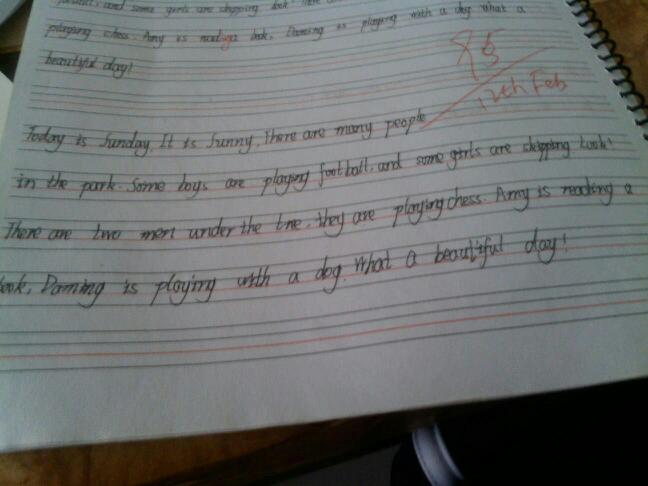 football, and some girls are skipping look! There are
playing chess. Amy is reading a book, Daming is playing with a dog what a
beautiful day!
95
12th Feb
Today is Sunday. It is Sunny. There are many people
in the park. Some boys are playing football, and some girls are skipping. Look!
There are two men under the tree, they are playing chess. Amy is reading a
book, Daming is playing with a dog. What a beautiful day!